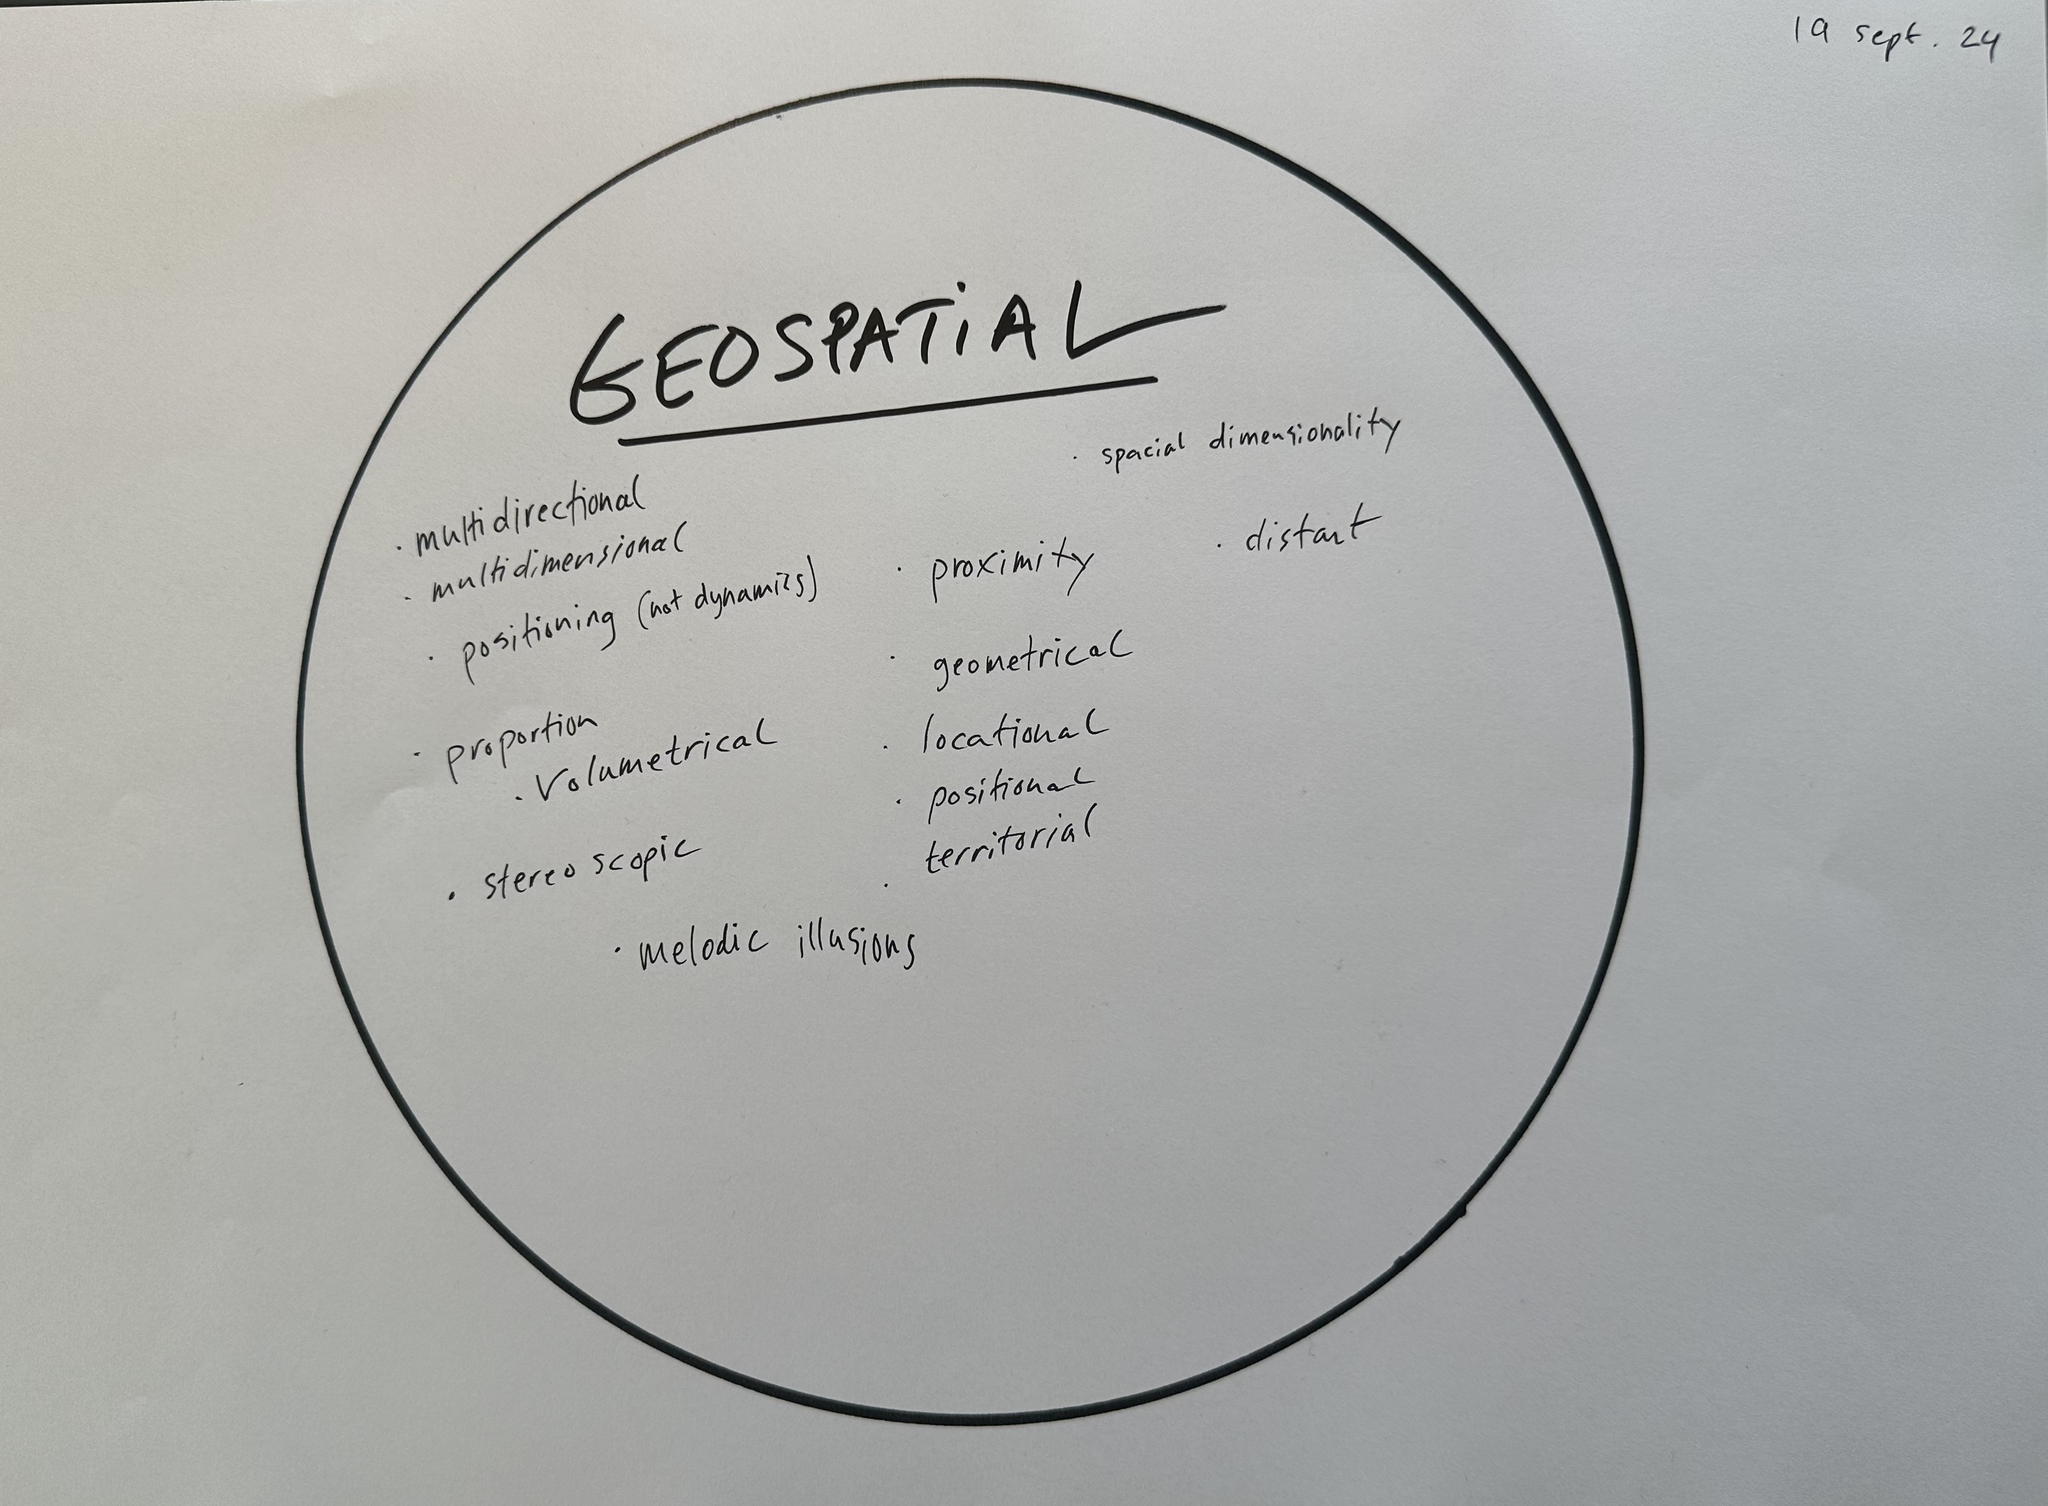 19 sept. 24
GEOSPATiAL
· spacial dimensionality
· multidirectional
· multidimensional
· positioning (not dynamics)
· proportion
· Volumetrical
· stereoscopic
· melodic illusions
· proximity
· geometrical
· locational
· positional
· territorial
· distant